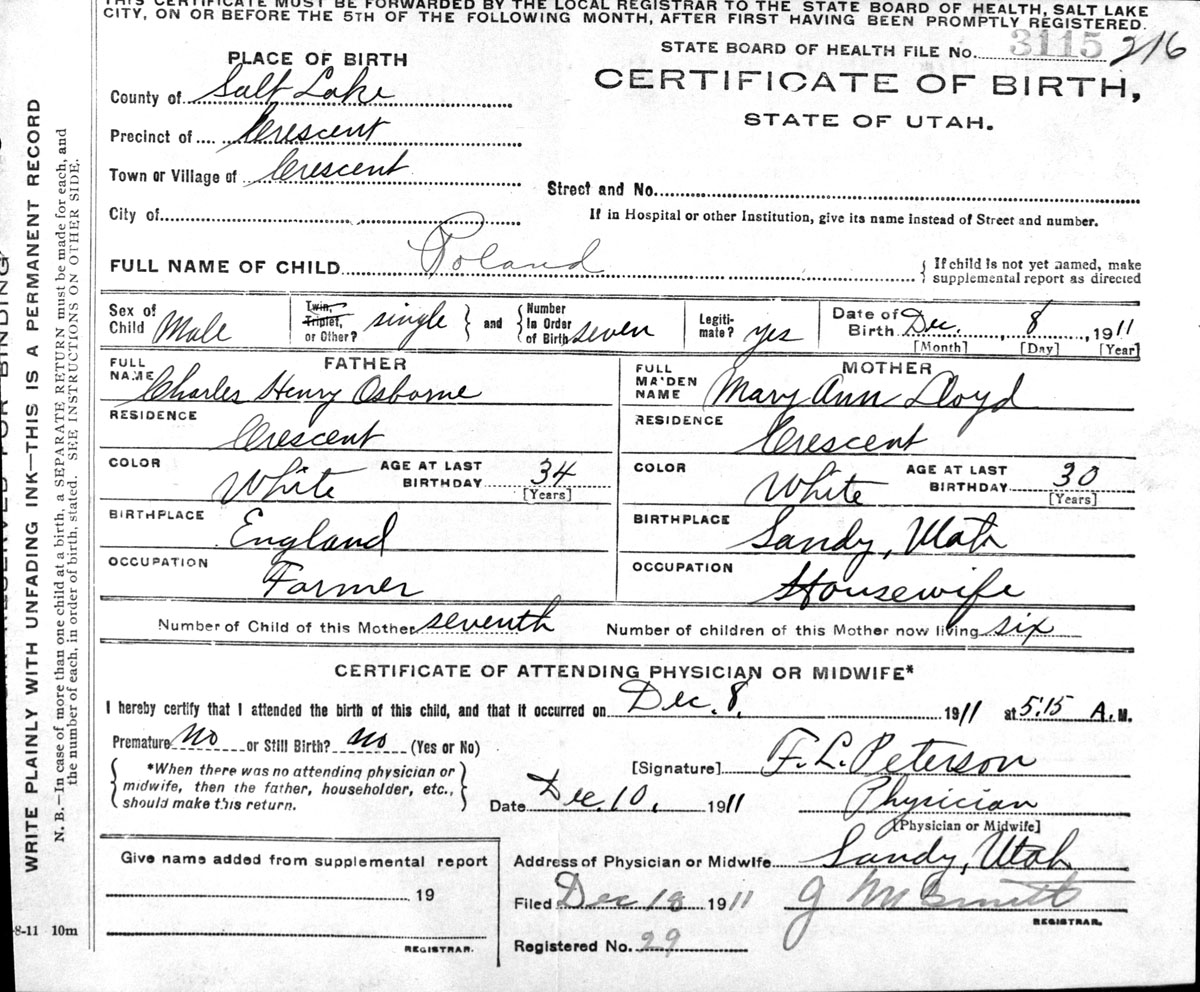 THIS CERTIFICATE MUST BE FORWARDED BY THE LOCAL REGISTRAR TO THE STATE BOARD OF HEALTH, SALT LAKE
CITY, ON OR BEFORE THE 5TH OF THE FOLLOWING MONTH, AFTER FIRST HAVING BEEN PROMPTLY REGISTERED.
STATE BOARD OF HEALTH FILE No. 3115 216
PLACE OF BIRTH
CERTIFICATE OF BIRTH,
STATE OF UTAH.
County of Salt Lake
Precinct of Crescent
Town or Village of Crescent
Street and No.
City of
If in Hospital or other Institution, give its name instead of Street and number.
FULL NAME OF CHILD Poland
{ If child is not yet named, make
supplemental report as directed
Sex of Child Male
Twin, Triplet, or Other? single } and { Number In Order of Birth seven
Legiti-mate? yes
Date of Birth Dec. 8, 1911
[Month] [Day] [Year]
FATHER
FULL NAME Charles Henry Osborne
RESIDENCE Crescent
COLOR White AGE AT LAST BIRTHDAY 34 [Years]
BIRTHPLACE England
OCCUPATION Farmer
MOTHER
FULL MAIDEN NAME Mary Ann Lloyd
RESIDENCE Crescent
COLOR White AGE AT LAST BIRTHDAY 30 [Years]
BIRTHPLACE Sandy, Utah
OCCUPATION Housewife
Number of Child of this Mother seventh Number of children of this Mother now living six
CERTIFICATE OF ATTENDING PHYSICIAN OR MIDWIFE*
I hereby certify that I attended the birth of this child, and that it occurred on Dec. 8, 1911 at 5:15 A.M.
Premature No or Still Birth? No (Yes or No)
{ *When there was no attending physician or
midwife, then the father, householder, etc.,
should make this return. }
[Signature] F. L. Peterson
Date Dec. 10, 1911 Physician
[Physician or Midwife]
Give name added from supplemental report
19
REGISTRAR.
Address of Physician or Midwife Sandy, Utah
Filed Dec 18 1911 J M Smith
REGISTRAR.
Registered No. 29
8-11 10m
WRITE PLAINLY WITH UNFADING INK—THIS IS A PERMANENT RECORD
N. B.—In case of more than one child at a birth, a SEPARATE RETURN must be made for each, and
the number of each, in order of birth, stated. SEE INSTRUCTIONS ON OTHER SIDE.